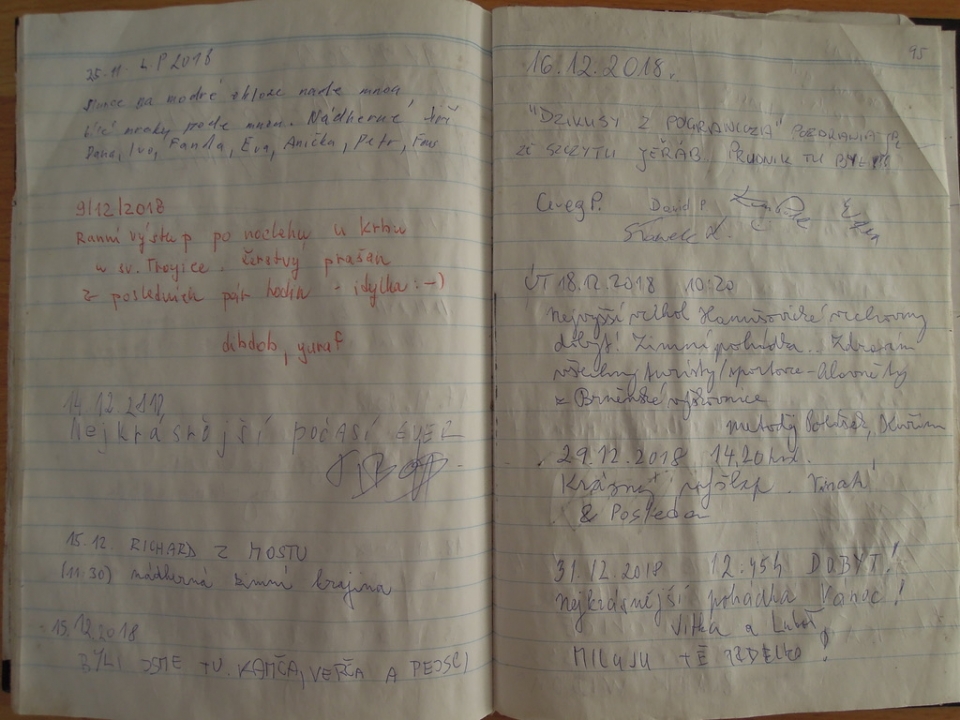 25.11. L.P 2018
slunce na modré obloze nade mnou
bílé mraky pode mnou. Nádherné
Dana, Ivo, Fanda, Eva, Anička, Petr,
9/12/2018
Ranní výstup po noclehu u krbu
u sv. Trojice. čerstvý prašan
z posledních pár hodin - idylka :-)
dibdob, yuraf
14.12.2018,
Nejkrásnější počasí EVER
15.12. RICHARD Z MOSTU
(11:30) nádherná zimní krajina
15.12.2018
BYLI JSME TU. KAMČA, VERČA A PEJSCI
95
16.12.2018.
"DZIKUSY Z POGRANICZA" POZDRAWIAJĄ
ZE SZCZYTU JEŘÁB. PRUDNIK TU BYŁ!!!
David P
Sławek
ÚT 18.12.2018 10:20
Nejvyšší vrchol Hanušovické vrchoviny
dobyt! Zimní pohádka.. Zdravím
všechny turisty/sportovce
z Brněnské
29.12.2018 14,20
Krásný výšlap.
& Posteda
31.12.2018 12.45h DOBYT!
Nejkrásnější pohádka Vánoc!
Vitka a Luboš
MILUJU TĚ